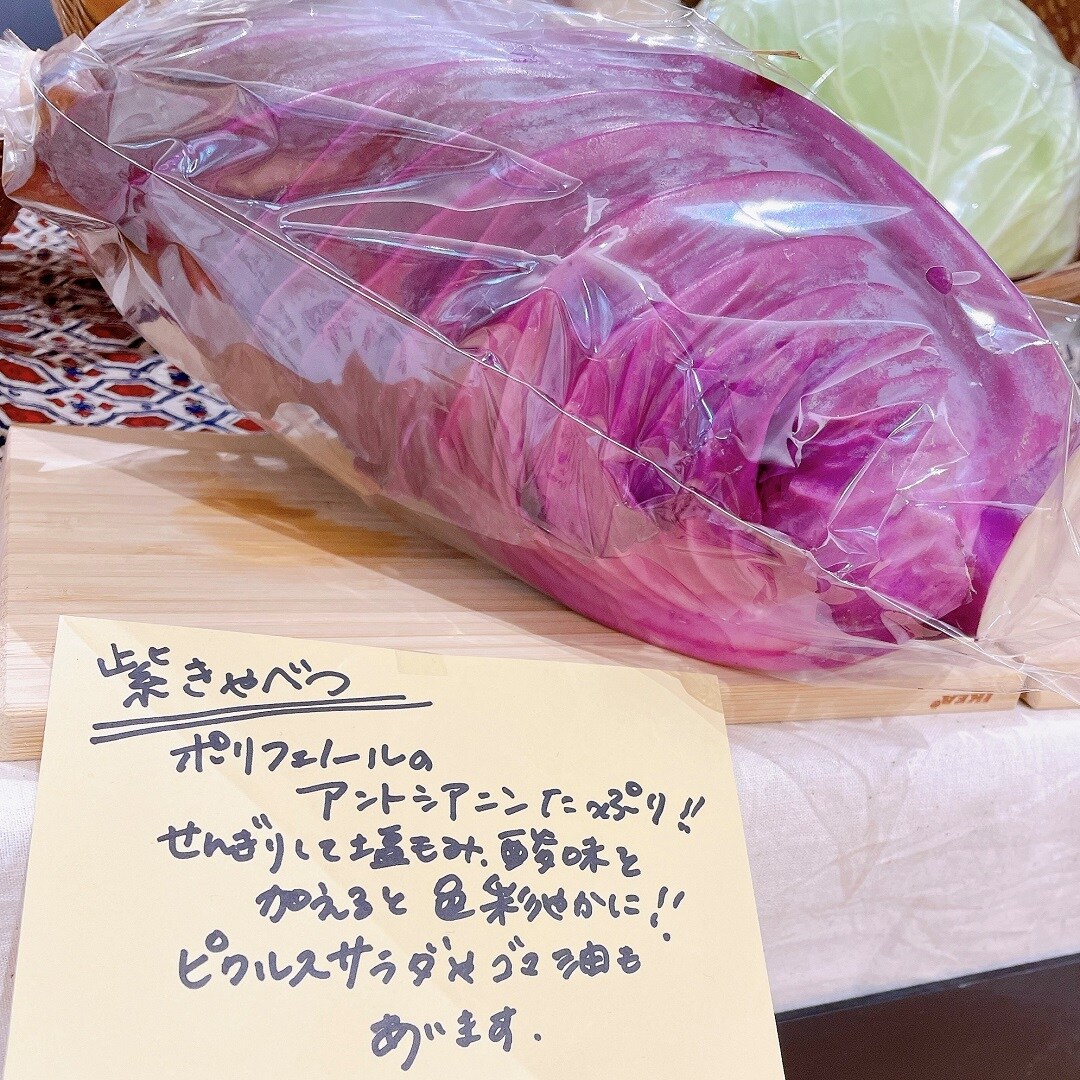 紫きゃべつ
ポリフェノールの
アントシアニンたっぷり!!
せんぎりして塩もみ、酸味を
加えると色彩やかに!!
ピクルスサラダやゴマ油も
あいます.
IKEA